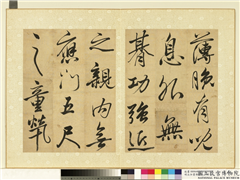 薄晚有兒
息外無
朞功強近
之親內無
應門五尺
之童煢
國立故宮博物院